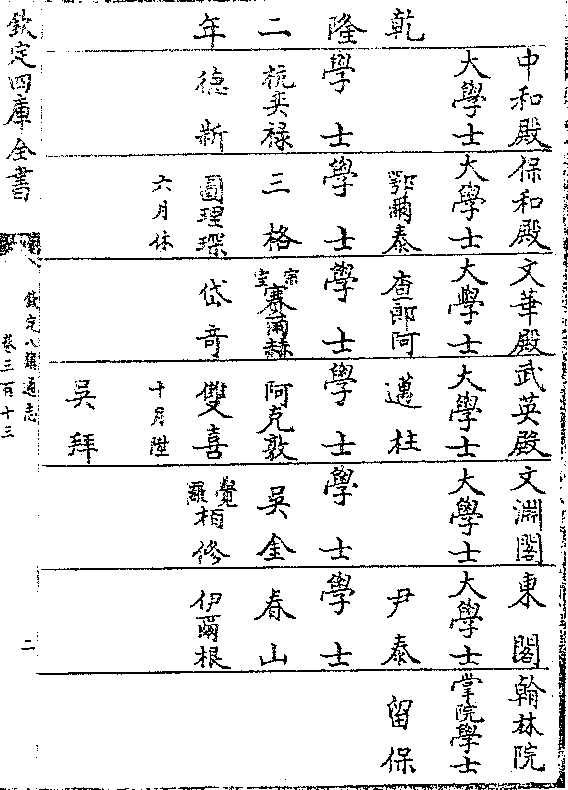 乾隆二年
中和殿
大學士
學士
杭奕祿
德新
保和殿
大學士
鄂爾泰
學士
三格
圖理琛
六月休
文華殿
大學士
查郎阿
學士
宗室賽爾赫
岱奇
武英殿
大學士
邁柱
學士
阿克敦
雙喜
十月陞
吳拜
文淵閣
大學士
學士
吳金
覺羅栢修
東閣
大學士
尹泰
學士
春山
伊爾根
翰林院
掌院學士
留保
欽定四庫全書
欽定八旗通志
卷三百十三
二